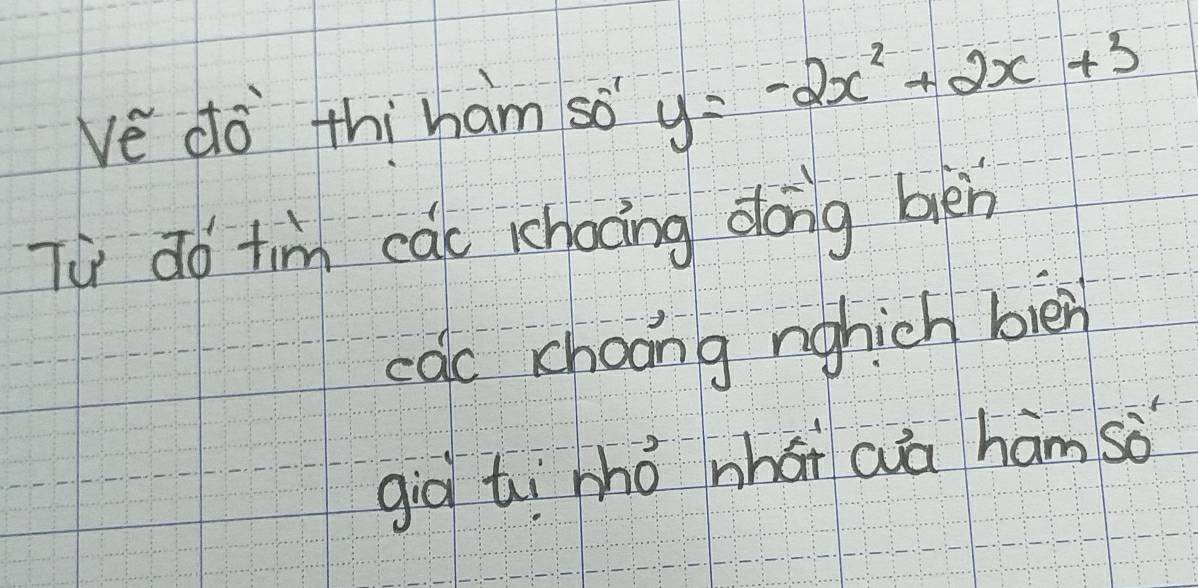 Vẽ đồ thị hàm số y = -2x² + 2x + 3
Từ đó tìm các khoảng đồng biến
các khoảng nghịch biến
giá trị nhỏ nhất của hàm số